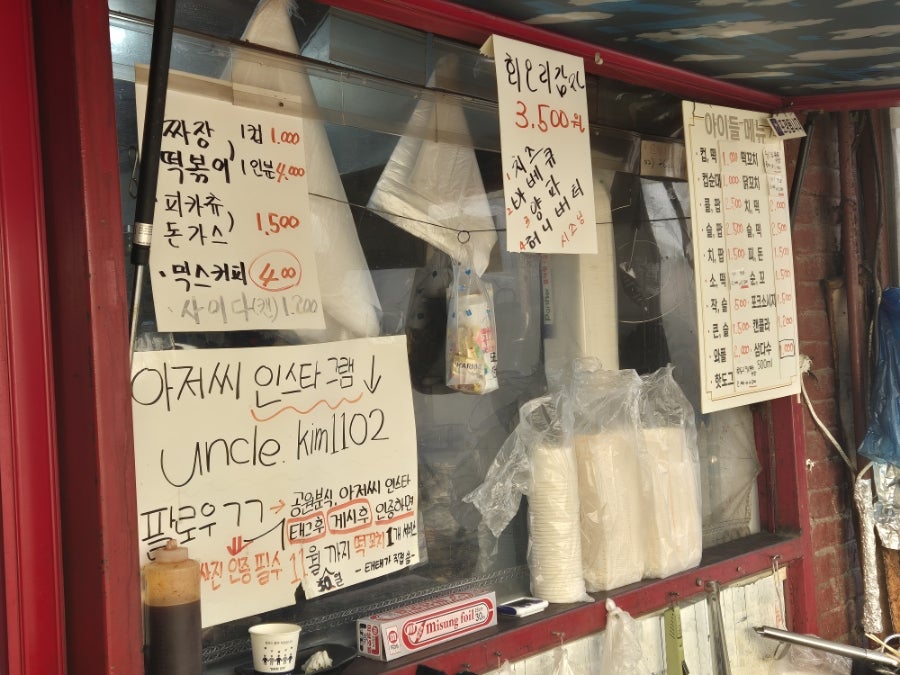 짜장 1컵 1.000
떡볶이 1인분 4,000
피카츄
돈가스 1.500
믹스커피 400
사이다(캔)
아저씨 인스타그램 ↓
uncle.kim1102
팔로우ㄱㄱ → 공원분식, 아저씨 인스타
태그후 게시후 인증하면
사진 인증 필수 11월까지 떡꼬치 1개 서비스
회오리감자
3,500원
치즈
바베큐
양파
허니버터
시즈닝
아이들 메뉴
컵, 떡 1,000 떡꼬치
컵순대 닭꼬치
콜, 팝 2,500 치, 떡 2,000
슬, 팝 슬, 떡
치, 팝 피, 돈 1,500
소, 떡 순, 꼬
포크소시지
콘, 슬 1,500 캔콜라 1,200
와플 2,000 삼다수 1,000
핫도그 500ml
Misung foil